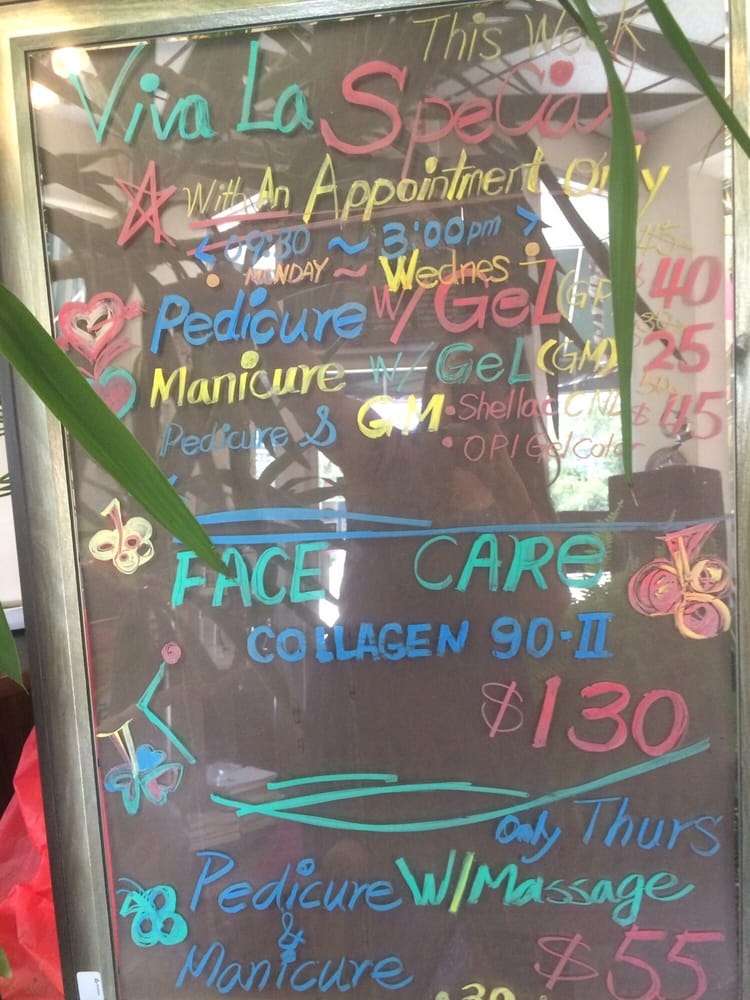 This Week
Viva La Special
With An Appointment Only
< 09:30 ~ 3:00pm >
MONDAY ~ Wednes -
Pedicure w/ GeL $40
Manicure w/ GeL (GM) 25
Pedicure & GM • Shellac CND $45
• OPI GelColor
FACE CARE
COLLAGEN 90-II
$130
Only Thurs
Pedicure W/Massage
&
Manicure $55